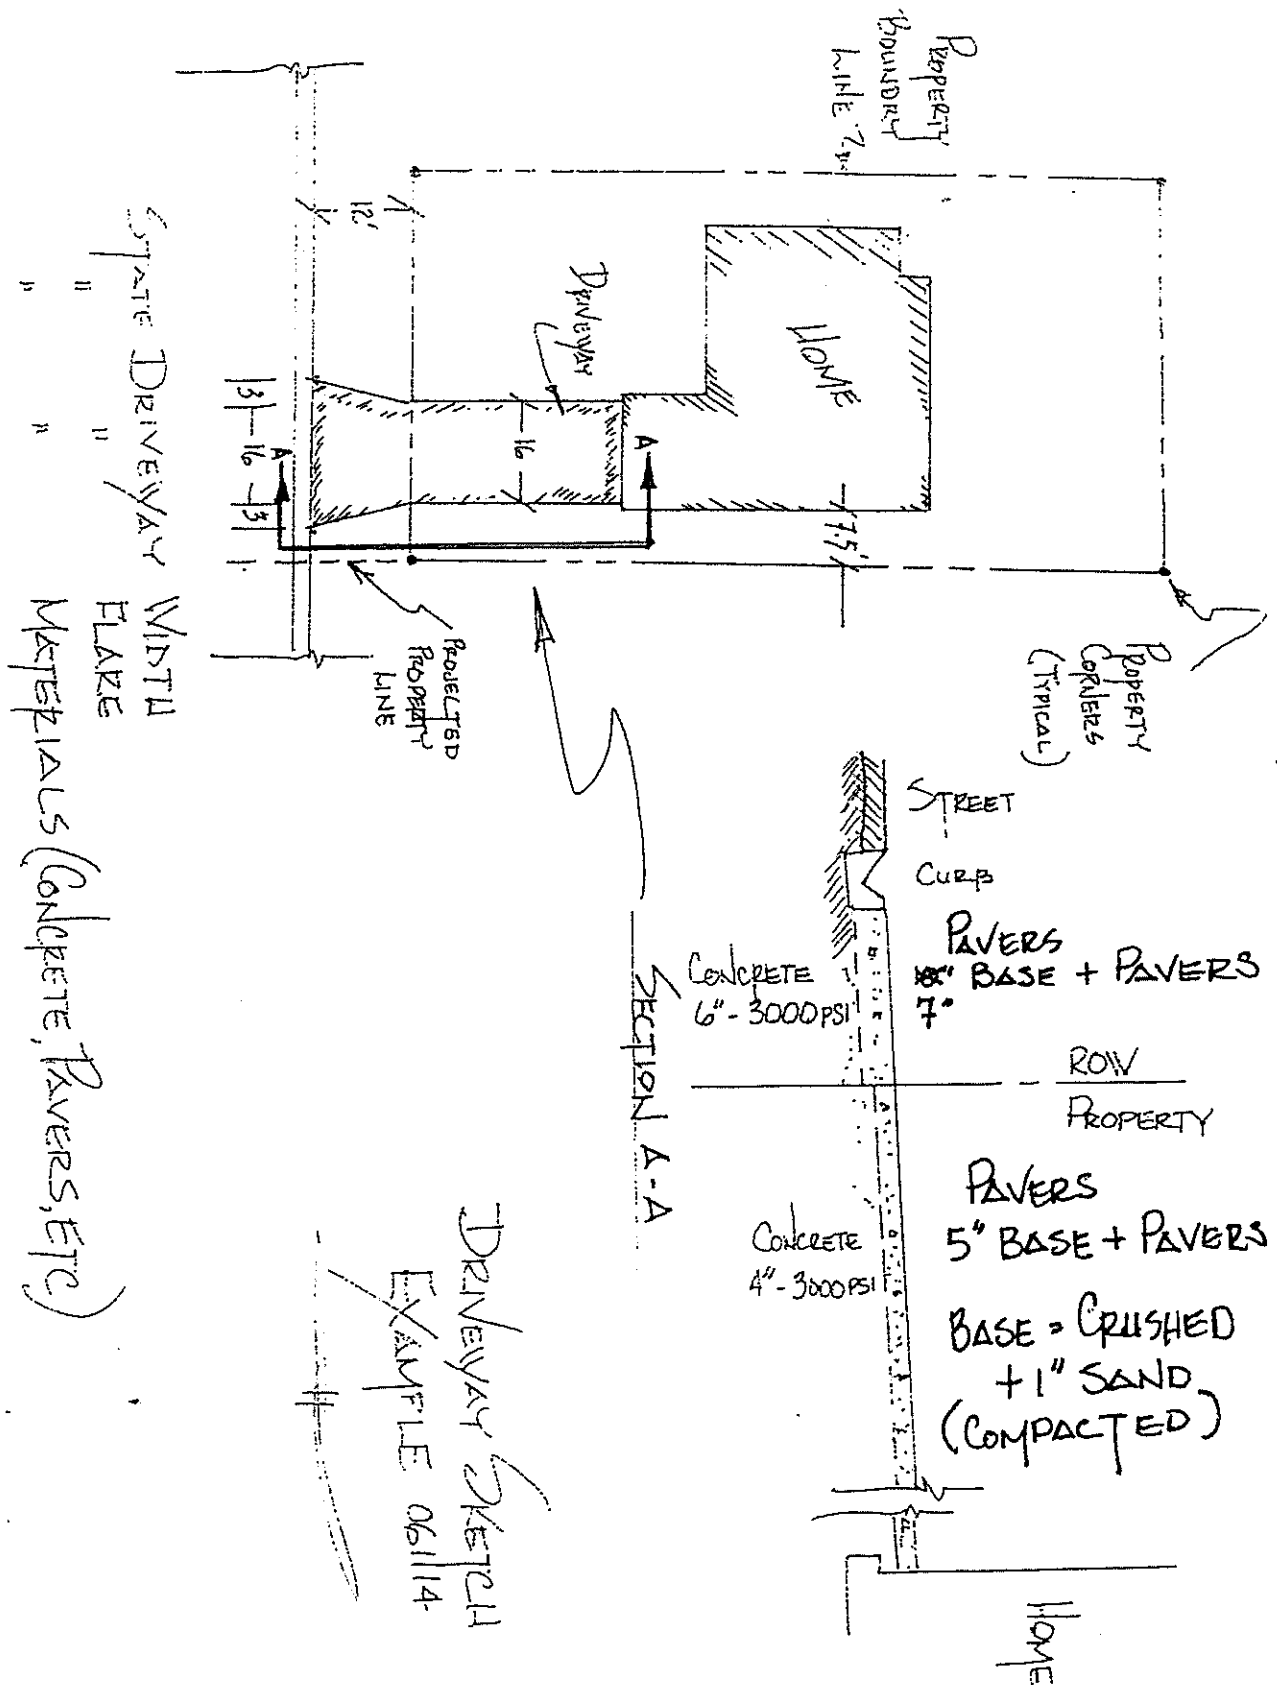 PROPERTY
BOUNDRY
LINE
12'
DRIVEWAY
HOME
16
7.5'
A
A
3 16 3
PROJECTED
PROPERTY
LINE
PROPERTY
CORNERS
(TYPICAL)
STATE DRIVEWAY WIDTH
" " FLARE
" " MATERIALS (CONCRETE, PAVERS, ETC)
STREET
CURB
PAVERS
BASE + PAVERS
7"
CONCRETE
6"-3000 PSI
ROW
PROPERTY
PAVERS
5" BASE + PAVERS
CONCRETE
4"-3000 PSI
BASE = CRUSHED
+ 1" SAND
(COMPACTED)
HOME
SECTION A-A
DRIVEWAY SKETCH
EXAMPLE 061114